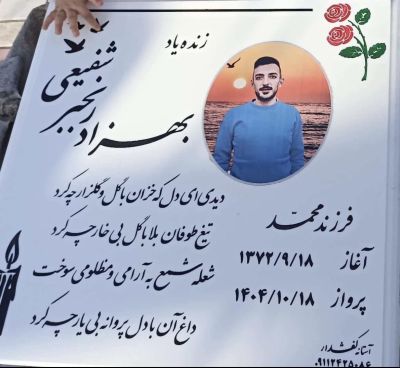 زنده یاد
بهزاد رنجبر شفیعی
دیدی ای دل که خزان با گل و گلزار چه کرد
تیغ طوفان بلا با گل بی خار چه کرد
شعله شمع به آرامی و مظلومی سوخت
داغ آن با دل پروانه بی یار چه کرد
فرزند محمد
آغاز ۱۳۷۲/۹/۱۸
پرواز ۱۴۰۴/۱۰/۱۸
آستانه کفشدار
۰۹۱۱۲۴۲۵۰۸۶